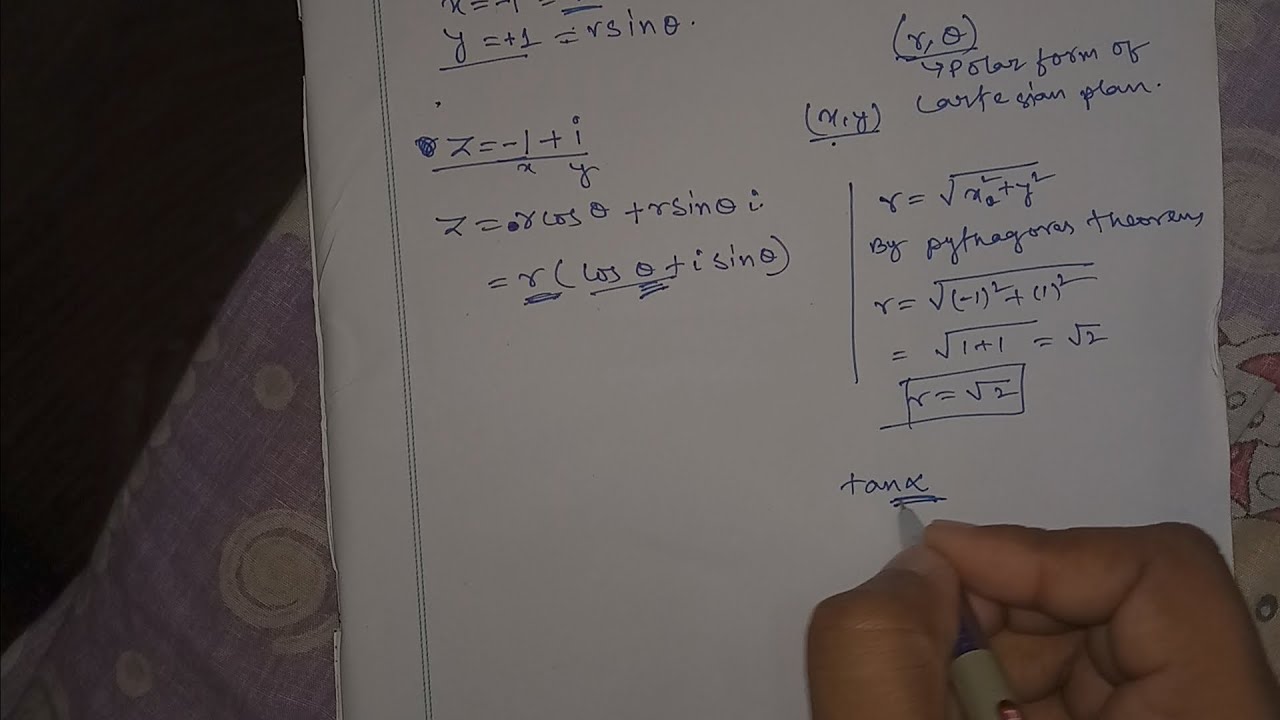 x = -1 =
y = +1 = r sin θ.
(r, θ)
↳ Polar form of
Cartesian plan.
(x, y)
z = -1 + i
x y
z = r cos θ + r sin θ i
= r ( cos θ + i sin θ )
r = √x² + y²
By pythagoras theorem
r = √(-1)² + (1)²
= √1+1 = √2
r = √2
tan α